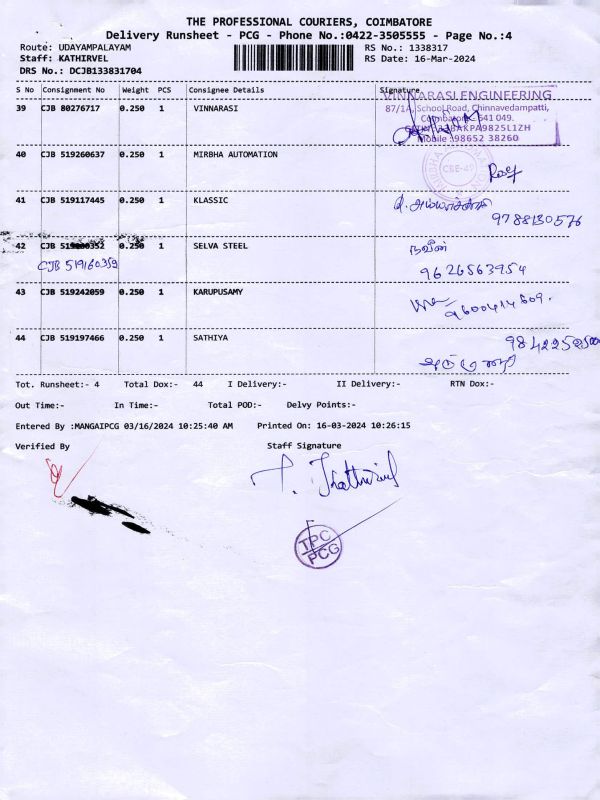 THE PROFESSIONAL COURIERS, COIMBATORE
Delivery Runsheet - PCG - Phone No.:0422-3505555 - Page No.:4
Route: UDAYAMPALAYAM RS No.: 1338317
Staff: KATHIRVEL RS Date: 16-Mar-2024
DRS No.: DCJB133831704
S No Consignment No Weight PCS Consignee Details Signature
VINNARASI ENGINEERING
39 CJB 80276717 0.250 1 VINNARASI 87/1A, School Road, Chinnavedampatti,
Coimbatore 641 049.
Mobile :98652 38260
40 CJB 519260637 0.250 1 MIRBHA AUTOMATION
CBE-49
41 CJB 519117445 0.250 1 KLASSIC
9788130576
42 CJB 0.250 1 SELVA STEEL நவீன்
CJB 519160359 9626563954
43 CJB 519242059 0.250 1 KARUPUSAMY
9600414809.
44 CJB 519197466 0.250 1 SATHIYA
Tot. Runsheet:- 4 Total Dox:- 44 I Delivery:- II Delivery:- RTN Dox:-
Out Time:- In Time:- Total POD:- Delvy Points:-
Entered By :MANGAIPCG 03/16/2024 10:25:40 AM Printed On: 16-03-2024 10:26:15
Verified By Staff Signature
TPC
PCG